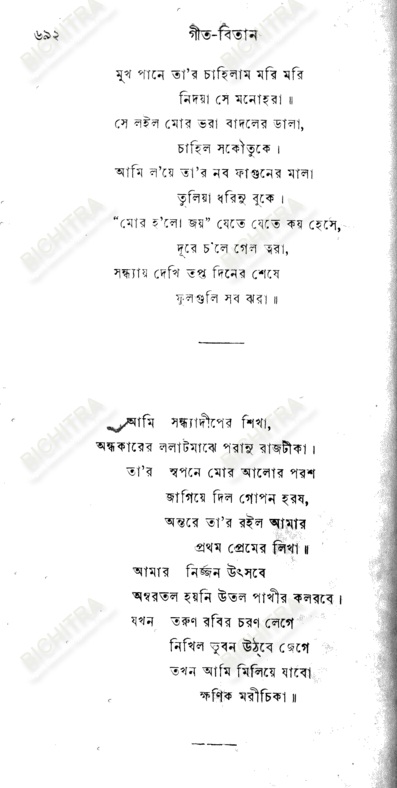 ৬৯২ গীত-বিতান
মুখ পানে তা'র চাহিলাম মরি মরি
নিদয়া সে মনোহরা ॥
সে লইল মোর ভরা বাদলের ডালা,
চাহিল সকৌতুকে ।
আমি ল'য়ে তা'র নব ফাগুনের মালা
তুলিয়া ধরিনু বুকে ।
"মোর হ'লো জয়" যেতে যেতে কয় হেসে,
দূরে চ'লে গেল ত্বরা,
সন্ধ্যায় দেখি তপ্ত দিনের শেষে
ফুলগুলি সব ঝরা ॥
আমি সন্ধ্যাদীপের শিখা,
অন্ধকারের ললাটমাঝে পরানু রাজটীকা ।
তা'র স্বপনে মোর আলোর পরশ
জাগিয়ে দিল গোপন হরষ,
অন্তরে তা'র রইল আমার
প্রথম প্রেমের লিখা ॥
আমার নির্জ্জন উৎসবে
অম্বরতল হয়নি উতল পাখীর কলরবে ।
যখন তরুণ রবির চরণ লেগে
নিখিল ভুবন উঠ্‌বে জেগে
তখন আমি মিলিয়ে যাবো
ক্ষণিক মরীচিকা ॥
BICHITRA
BICHITRA
BICHITRA
BICHITRA
BICHITRA
BICHITRA